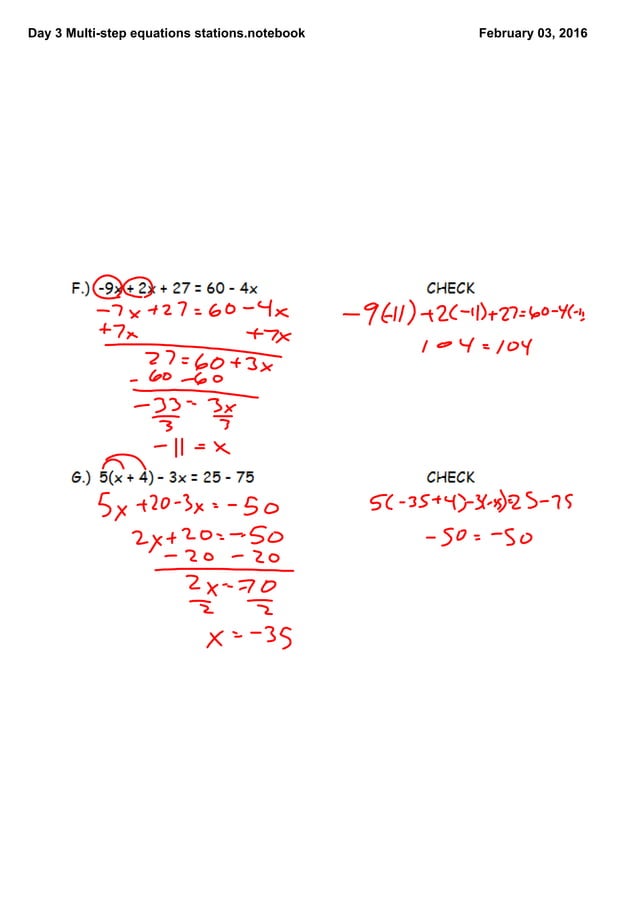 Day 3 Multi-step equations stations.notebook
February 03, 2016
F.) -9x + 2x + 27 = 60 - 4x
CHECK
-7x +27 = 60 -4x
-9(-11) +2(-11)+27=60-4(-11
+7x +7x
104 = 104
27 = 60 + 3x
-60 -60
-33 = 3x
3 3
-11 = x
G.) 5(x + 4) - 3x = 25 - 75
CHECK
5x +20 -3x = -50
5(-35+4)-3(-35)=25-75
2x+20=-50
-50 = -50
-20 -20
2x = -70
2 2
x = -35